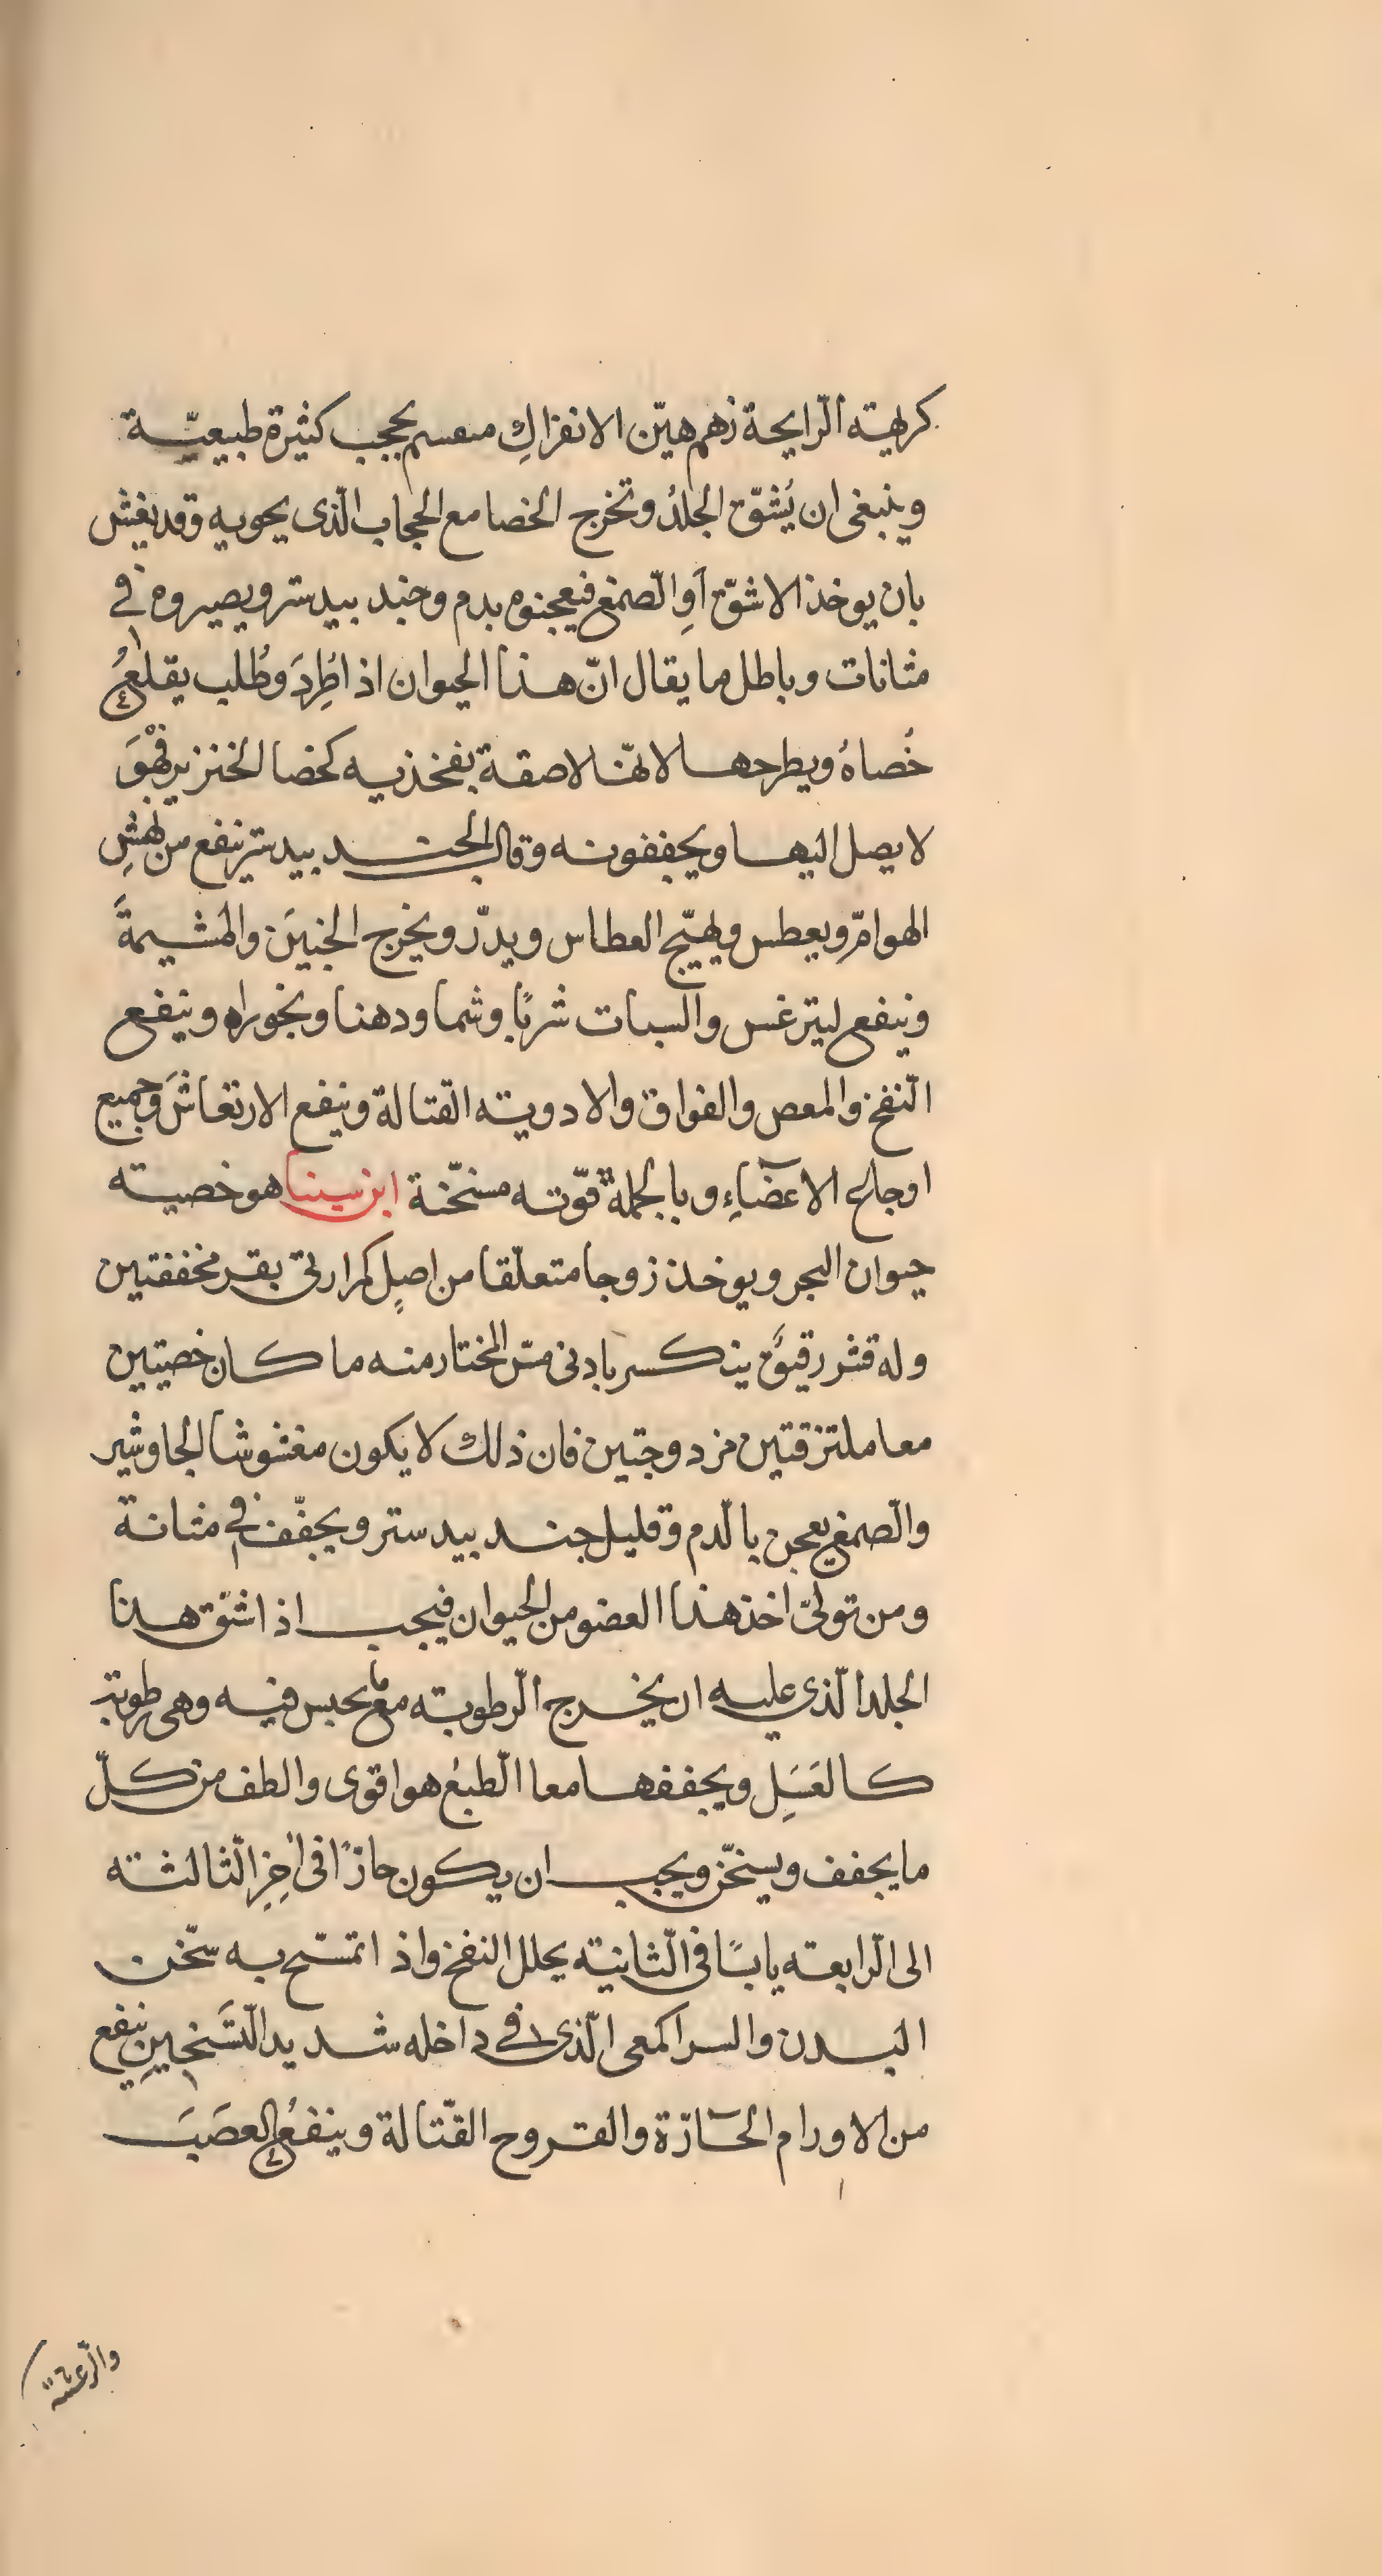 كريهته الرايحة زهم هيّن الانفراك منقسم بحجب كثيرة طبيعيّة
وينبغى ان يُشقّ الجلدُ وتخرج الخصا مع الحجاب الّذى يحويه وقد يغش
بان يوخذ الاشقّ اَوِ الصّمغ فيعجنوه بدم وجند بيدستر ويصيروه فى
مثانات وباطل ما يقال انّ هذا الحيوان اذا طُرِدَ وطُلب يقلعُ
خُصاهُ ويطرحها لانّها لاصقة بفخذيه كخصا الخنزير فهْوَ
لا يصل اليها ويجففونه وقال الجند بيدستر ينفع من نهشِ
الهوامّ ويعطس ويهيّج العطاس ويدرّ ويخرج الجنينَ والمشيمةَ
وينفع ليترغس والسبات شربًا وشما ودهنا وبخورا وينفع
النّفخ والمعص والفواق والادويته القتالة وينفع الارتعاشَ وجميع
اوجاع الاعضآءِ وبالجملة قوّته مسخّنة ابن سينا هو خصيته
حيوان البحر ويوخذ زوجا متعلّقا من اصلٍ كمرارتى بقر مخففتين
وله قشر رقيقٌ ينكسر بادنى مسّ المختار منه ما كان خصيتين
معا ملتزقتين مزدوجتين فان ذلك لا يكون مغشوشا الجاوشير
والصّمغ يعجن بالدّم وقليل جند بيدستر ويجفّف فى مثانة
ومن تولّى اخذ هذا العضو من الحيوان فيجب اذا شق هذا
الجلد الّذي عليه ان يخرج الرّطوبته مع ما يحبس فيه وهى رطوبته
كالعَسَلِ ويجففها معا الطّبعُ هو اقوى والطف من كلّ
ما يجفف ويسخّن ويجب ان يكون حارًّا فى اخِرِ الثّالثته
الى الرّابعته يابسًا فى الثّانيته يحلل النفخ واذا تمسّح به سخّن
البدن والسراكمعى الّذى فى داخله شديد التّسَخينِ ينفع
من الاورام الحارّة والقروح القتّالة وينفعُ العصَبَ
والرّعشة